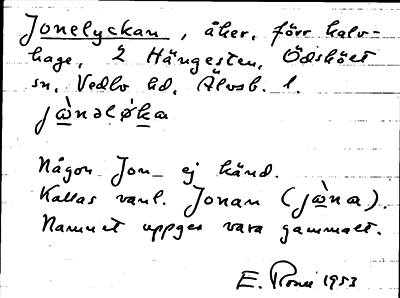 Jonelyckan, åker, förr kalv-
hage, 2 Hängesten, Ödskölt
sn, Vedbo hd, Älvsb. l.
jὼnəlø̀ka
Någon Jon_ ej känd.
Kallas vanl. Jonan (jὼna).
Namnet uppges vara gammalt.
E. 1953